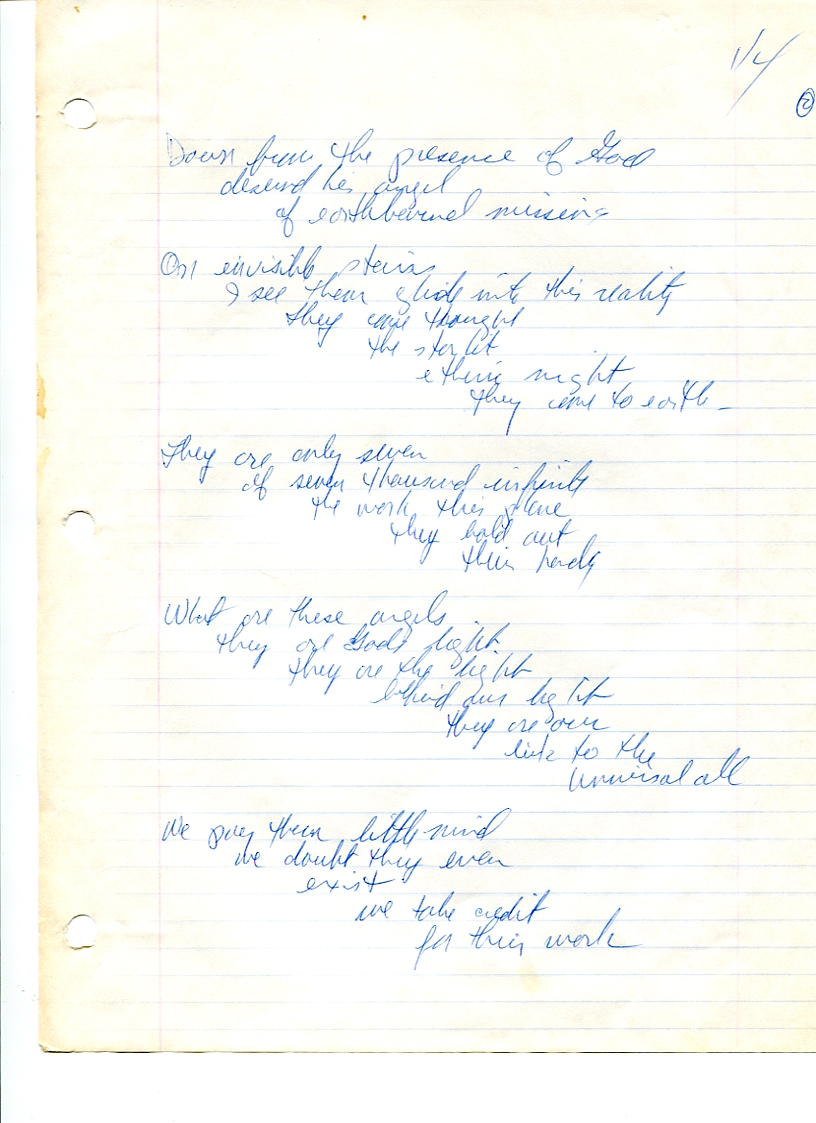 1/4
2
Down from the presence of God
descend his angel
of earthbound missing
On invisible stairs
I see them glide into this reality
they come thought
the starlit
etheric night
they come to earth
They are only seven
of seven thousand infinite
the work this plane
they hold out
their hands
What are these angels
they are Gods light
they are the light
behind our light
they are our
link to the
Universal all
We pay them little mind
we doubt they even
exist
we take credit
for their work